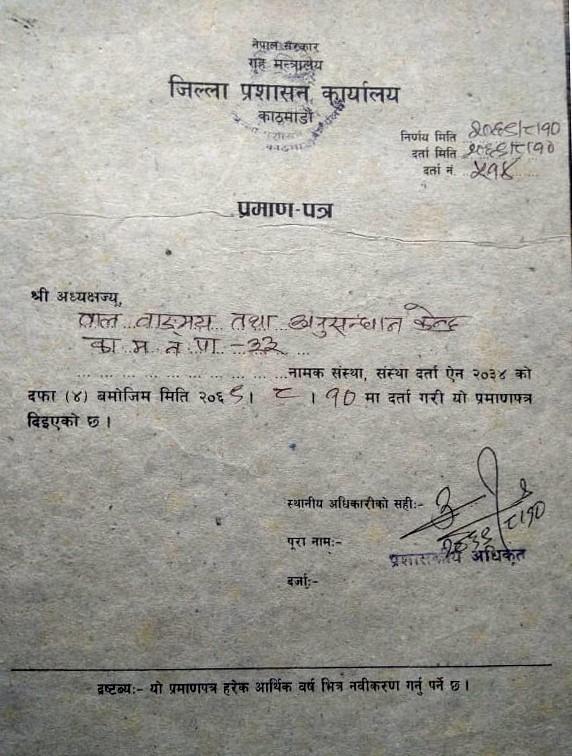 नेपाल सरकार
गृह मन्त्रालय
जिल्ला प्रशासन कार्यालय
काठमाडौं
निर्णय मिति २०६९।८।१०
दर्ता मिति २०६९।८।१०
दर्ता नं. ५१४
प्रमाण-पत्र
श्री अध्यक्षज्यू,
वाङमय तथा अनुसन्धान केन्द्र
का म न पा -३२
नामक संस्था, संस्था दर्ता ऐन २०३४ को
दफा (४) बमोजिम मिति २०६९। ८ । १० मा दर्ता गरी यो प्रमाणपत्र
दिइएको छ ।
स्थानीय अधिकारीको सही:-
पूरा नाम:-
२०६९।८।१०
प्रशासकीय अधिकृत
दर्जा:-
द्रष्टब्य:- यो प्रमाणपत्र हरेक आर्थिक वर्ष भित्र नवीकरण गर्नु पर्ने छ ।